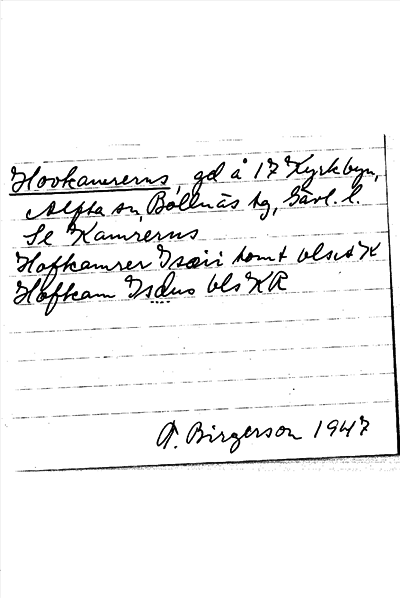 Hovkamrerns, gd å 17 Kyrkbyn,
Alfta sn, Bollnäs tg, Gävl. l.
Se Kamrerns
Hofkamrer Isæii tomt
Hofkam Isdus bls KR
A. Birgerson 1947